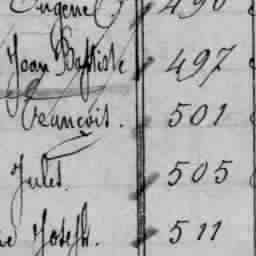 Eugène 496
Jean Baptiste 497
François. 501
Jules. 505
Joseph. 511